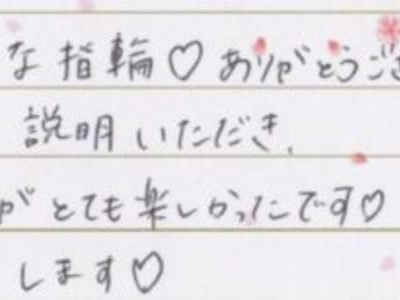 な指輪♡ありがとうござ
説明いただき、
がとても楽しかったです♡
します♡